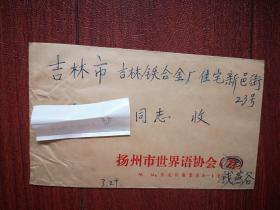 吉林市 吉林铁合金厂住宅新邑街
23号
同志 收
扬州市世界语协会
钱燕谷
3.29.